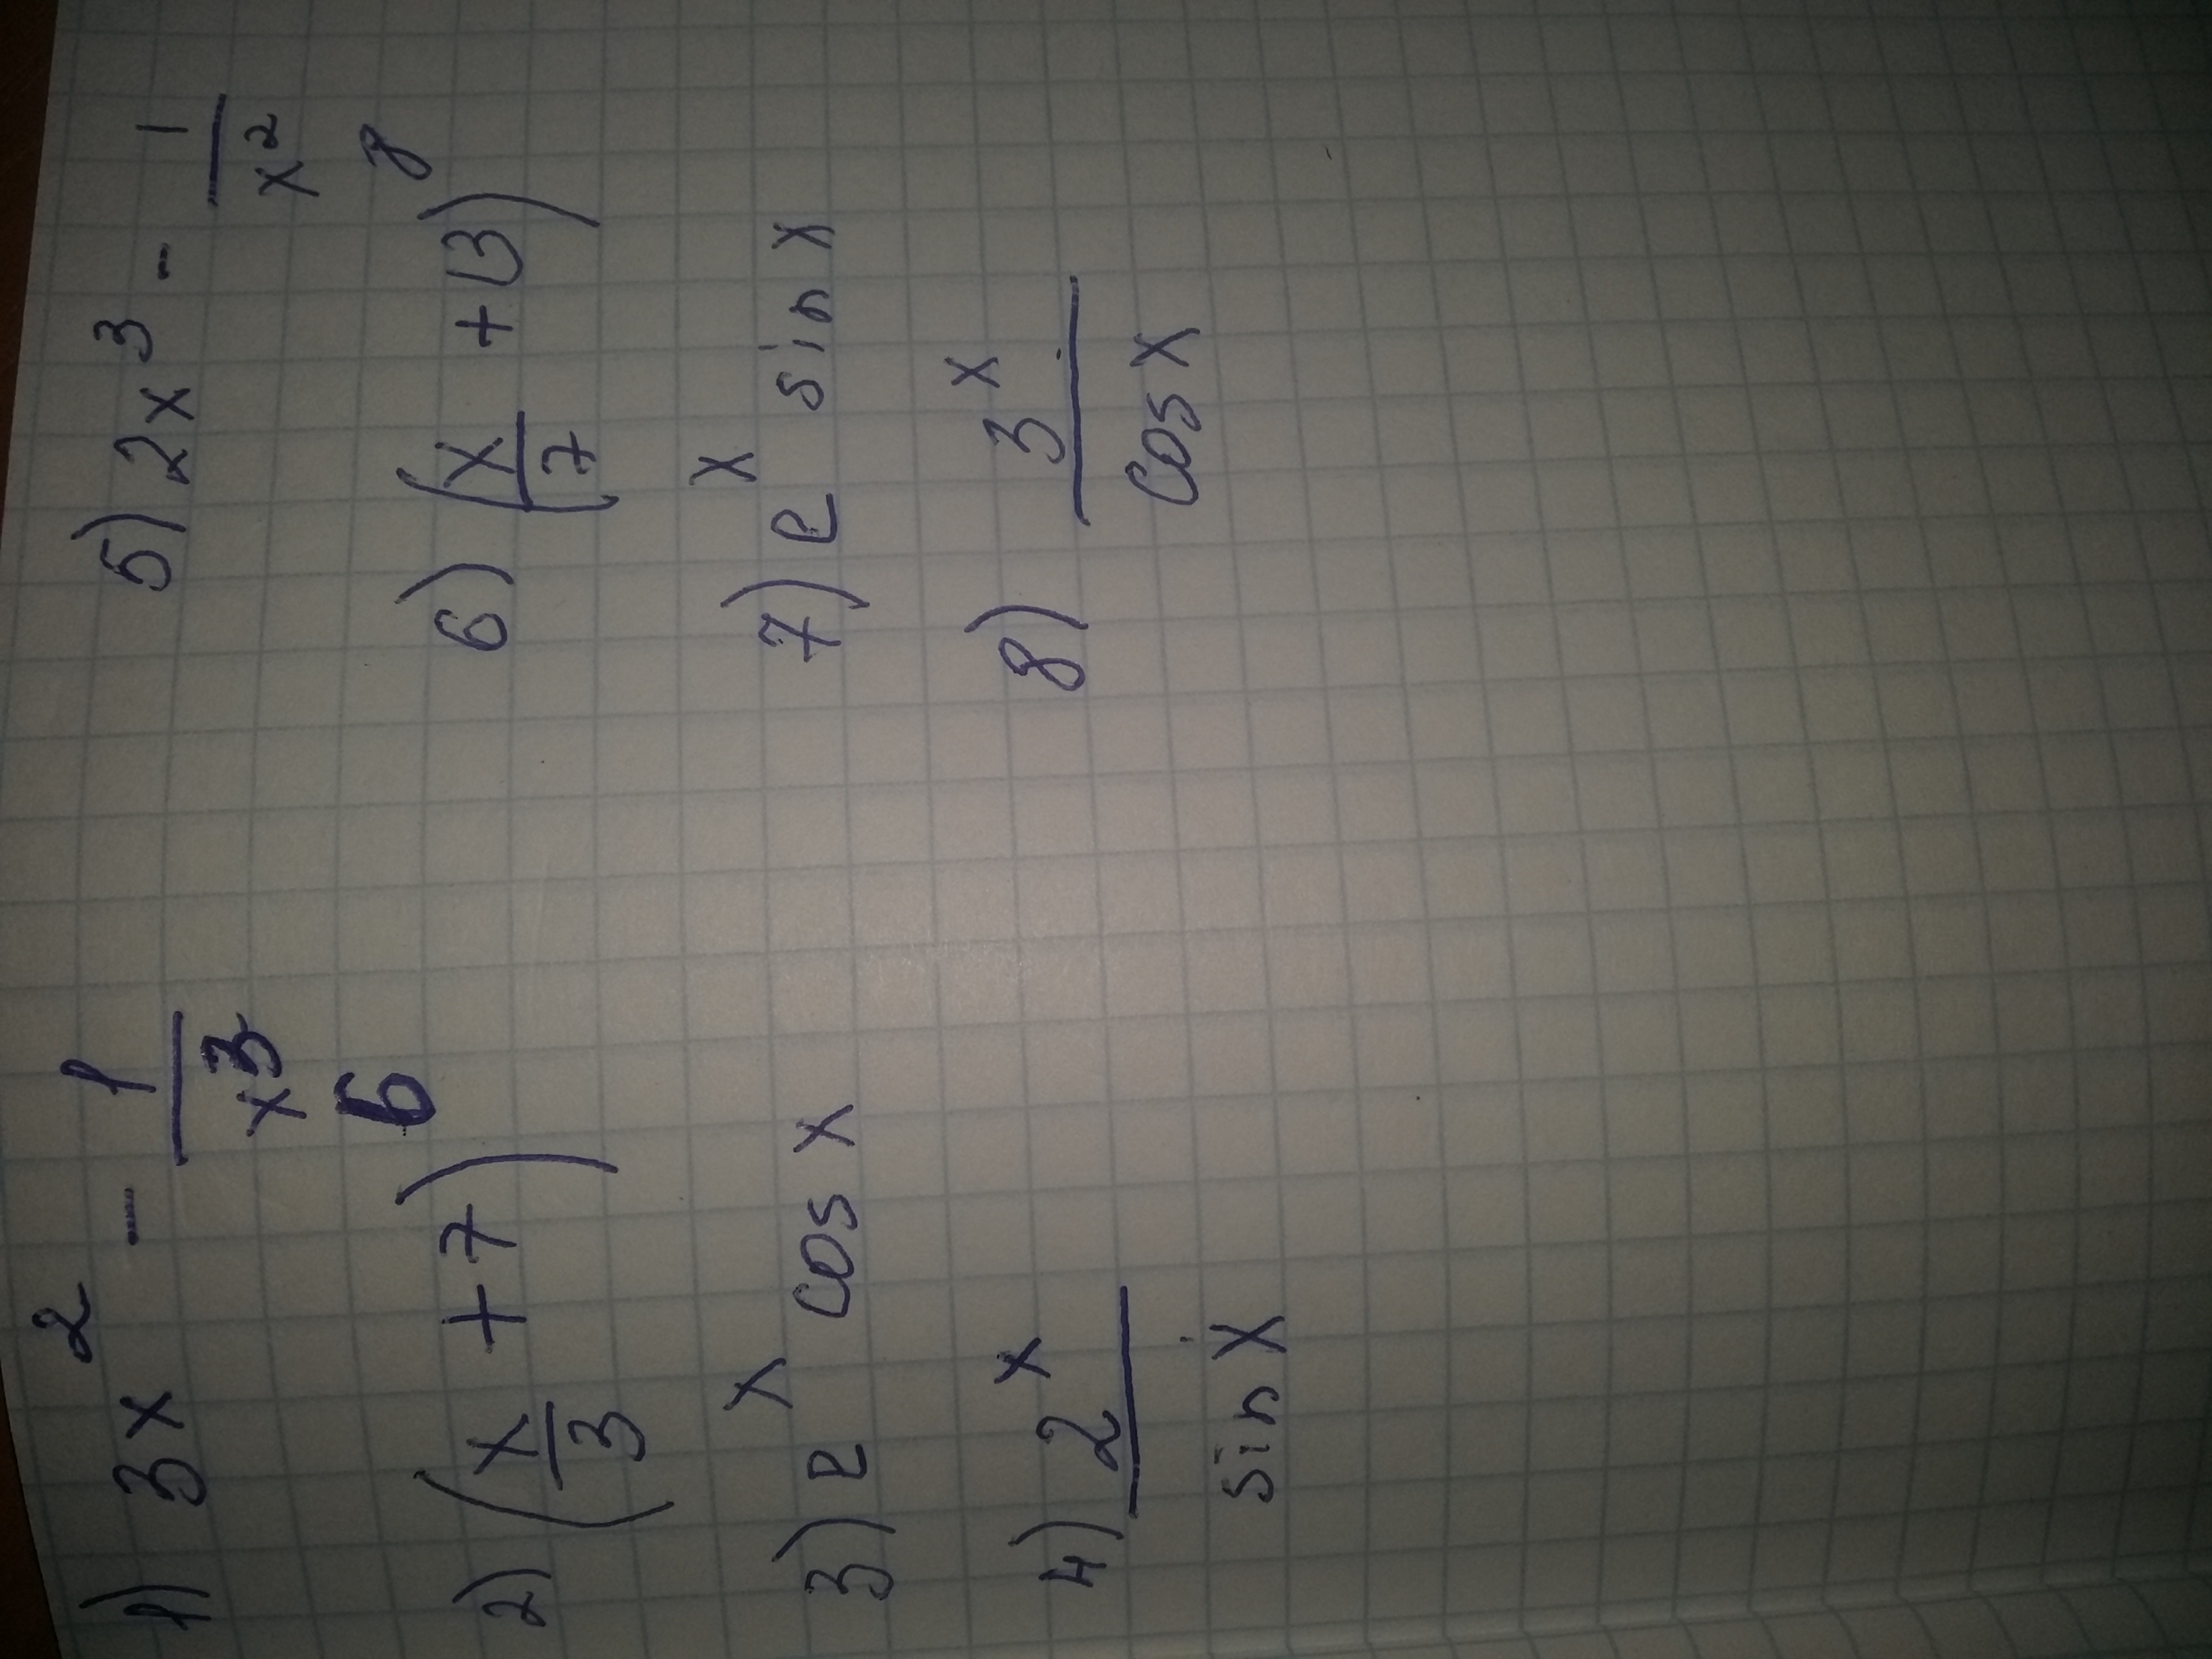 1) 3x² - 1/x³
2) (x/3 + 7)⁶
3) eˣ cos x
4) 2ˣ/sin x
5) 2x³ - 1/x²
6) (x/7 + 13)⁸
7) eˣ sin x
8) 3ˣ/cos x